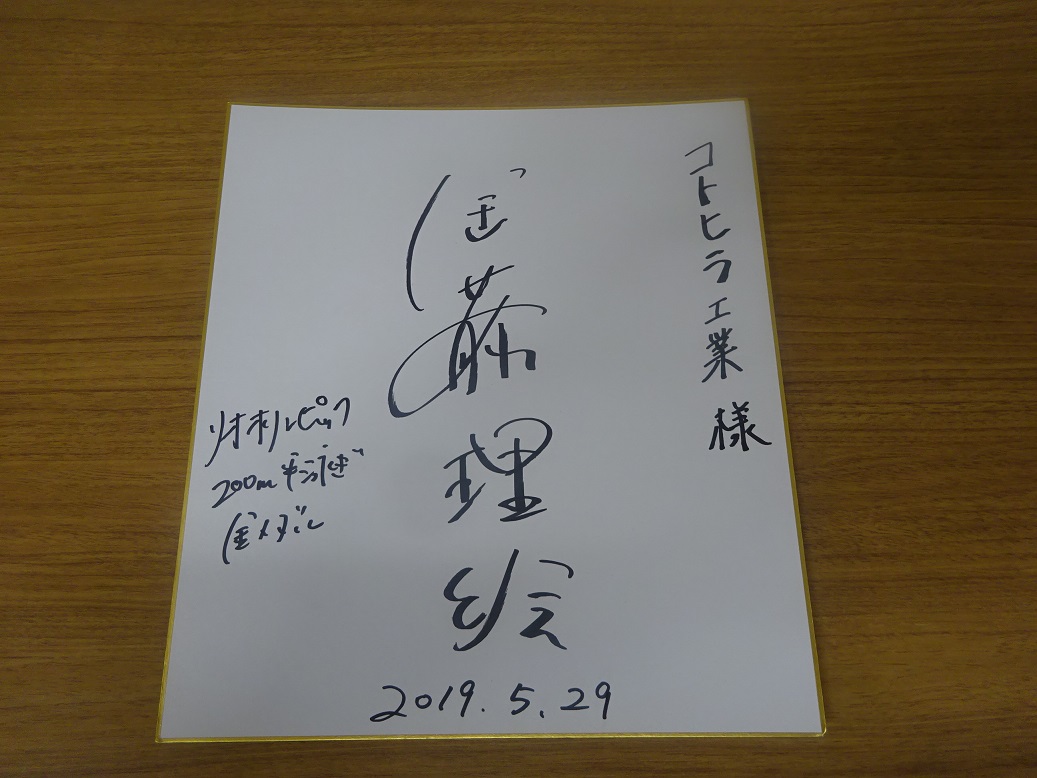 コトヒラ工業 様
金藤理絵
リオオリンピック
200m平泳ぎ
金メダル
2019.5.29